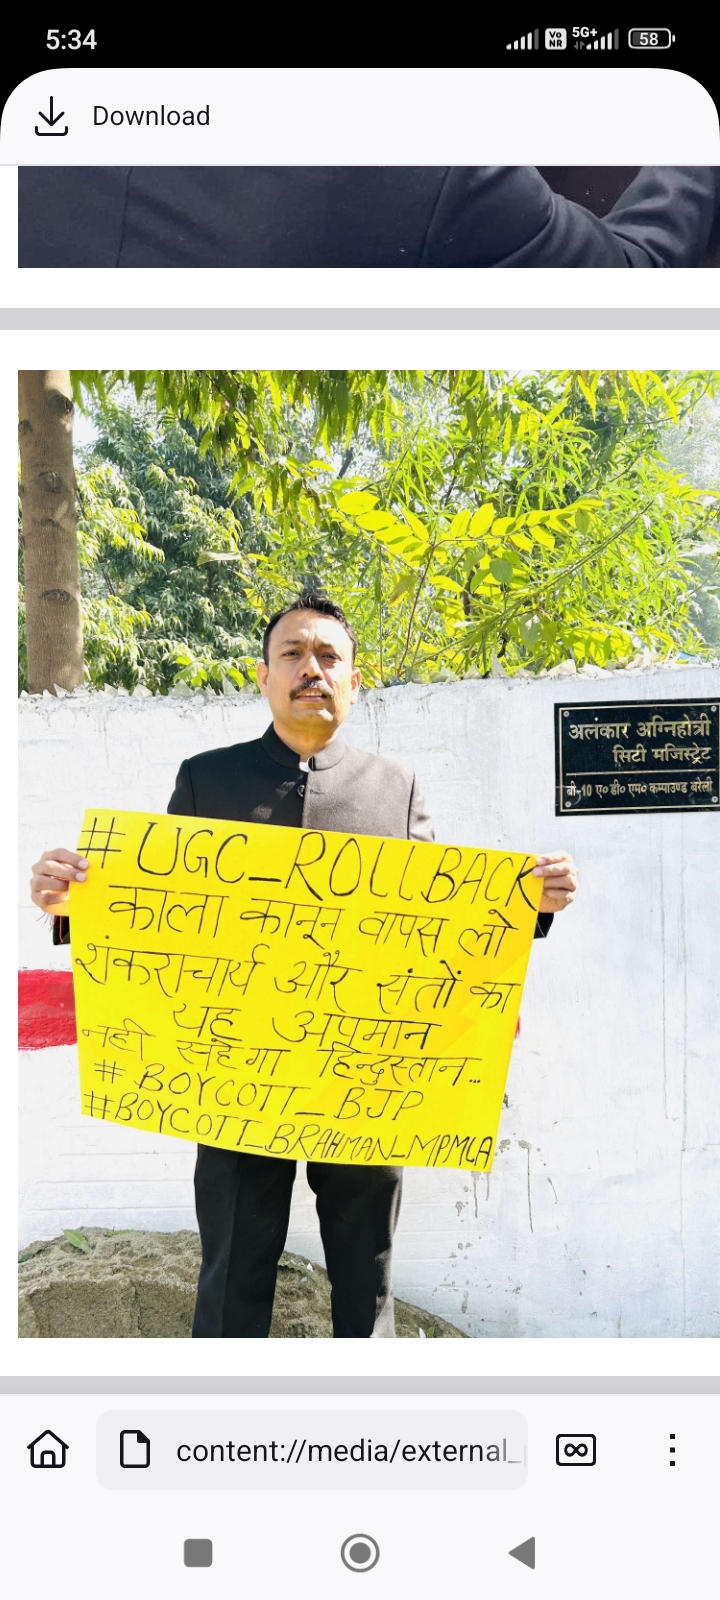 5:34
Vo NR 5G+ 58
Download
अलंकार अग्निहोत्री
सिटी मजिस्ट्रेट
बी-10 ए० डी० एम० कम्पाउण्ड बरेली
#UGC_ROLLBACK
काला कानून वापस लो
शंकराचार्य और संतों का
यह अपमान
नही सहेगा हिन्दुस्तान...
# BOYCOTT_BJP
#BOYCOTT_BRAHMAN_MPMLA
content://media/external_